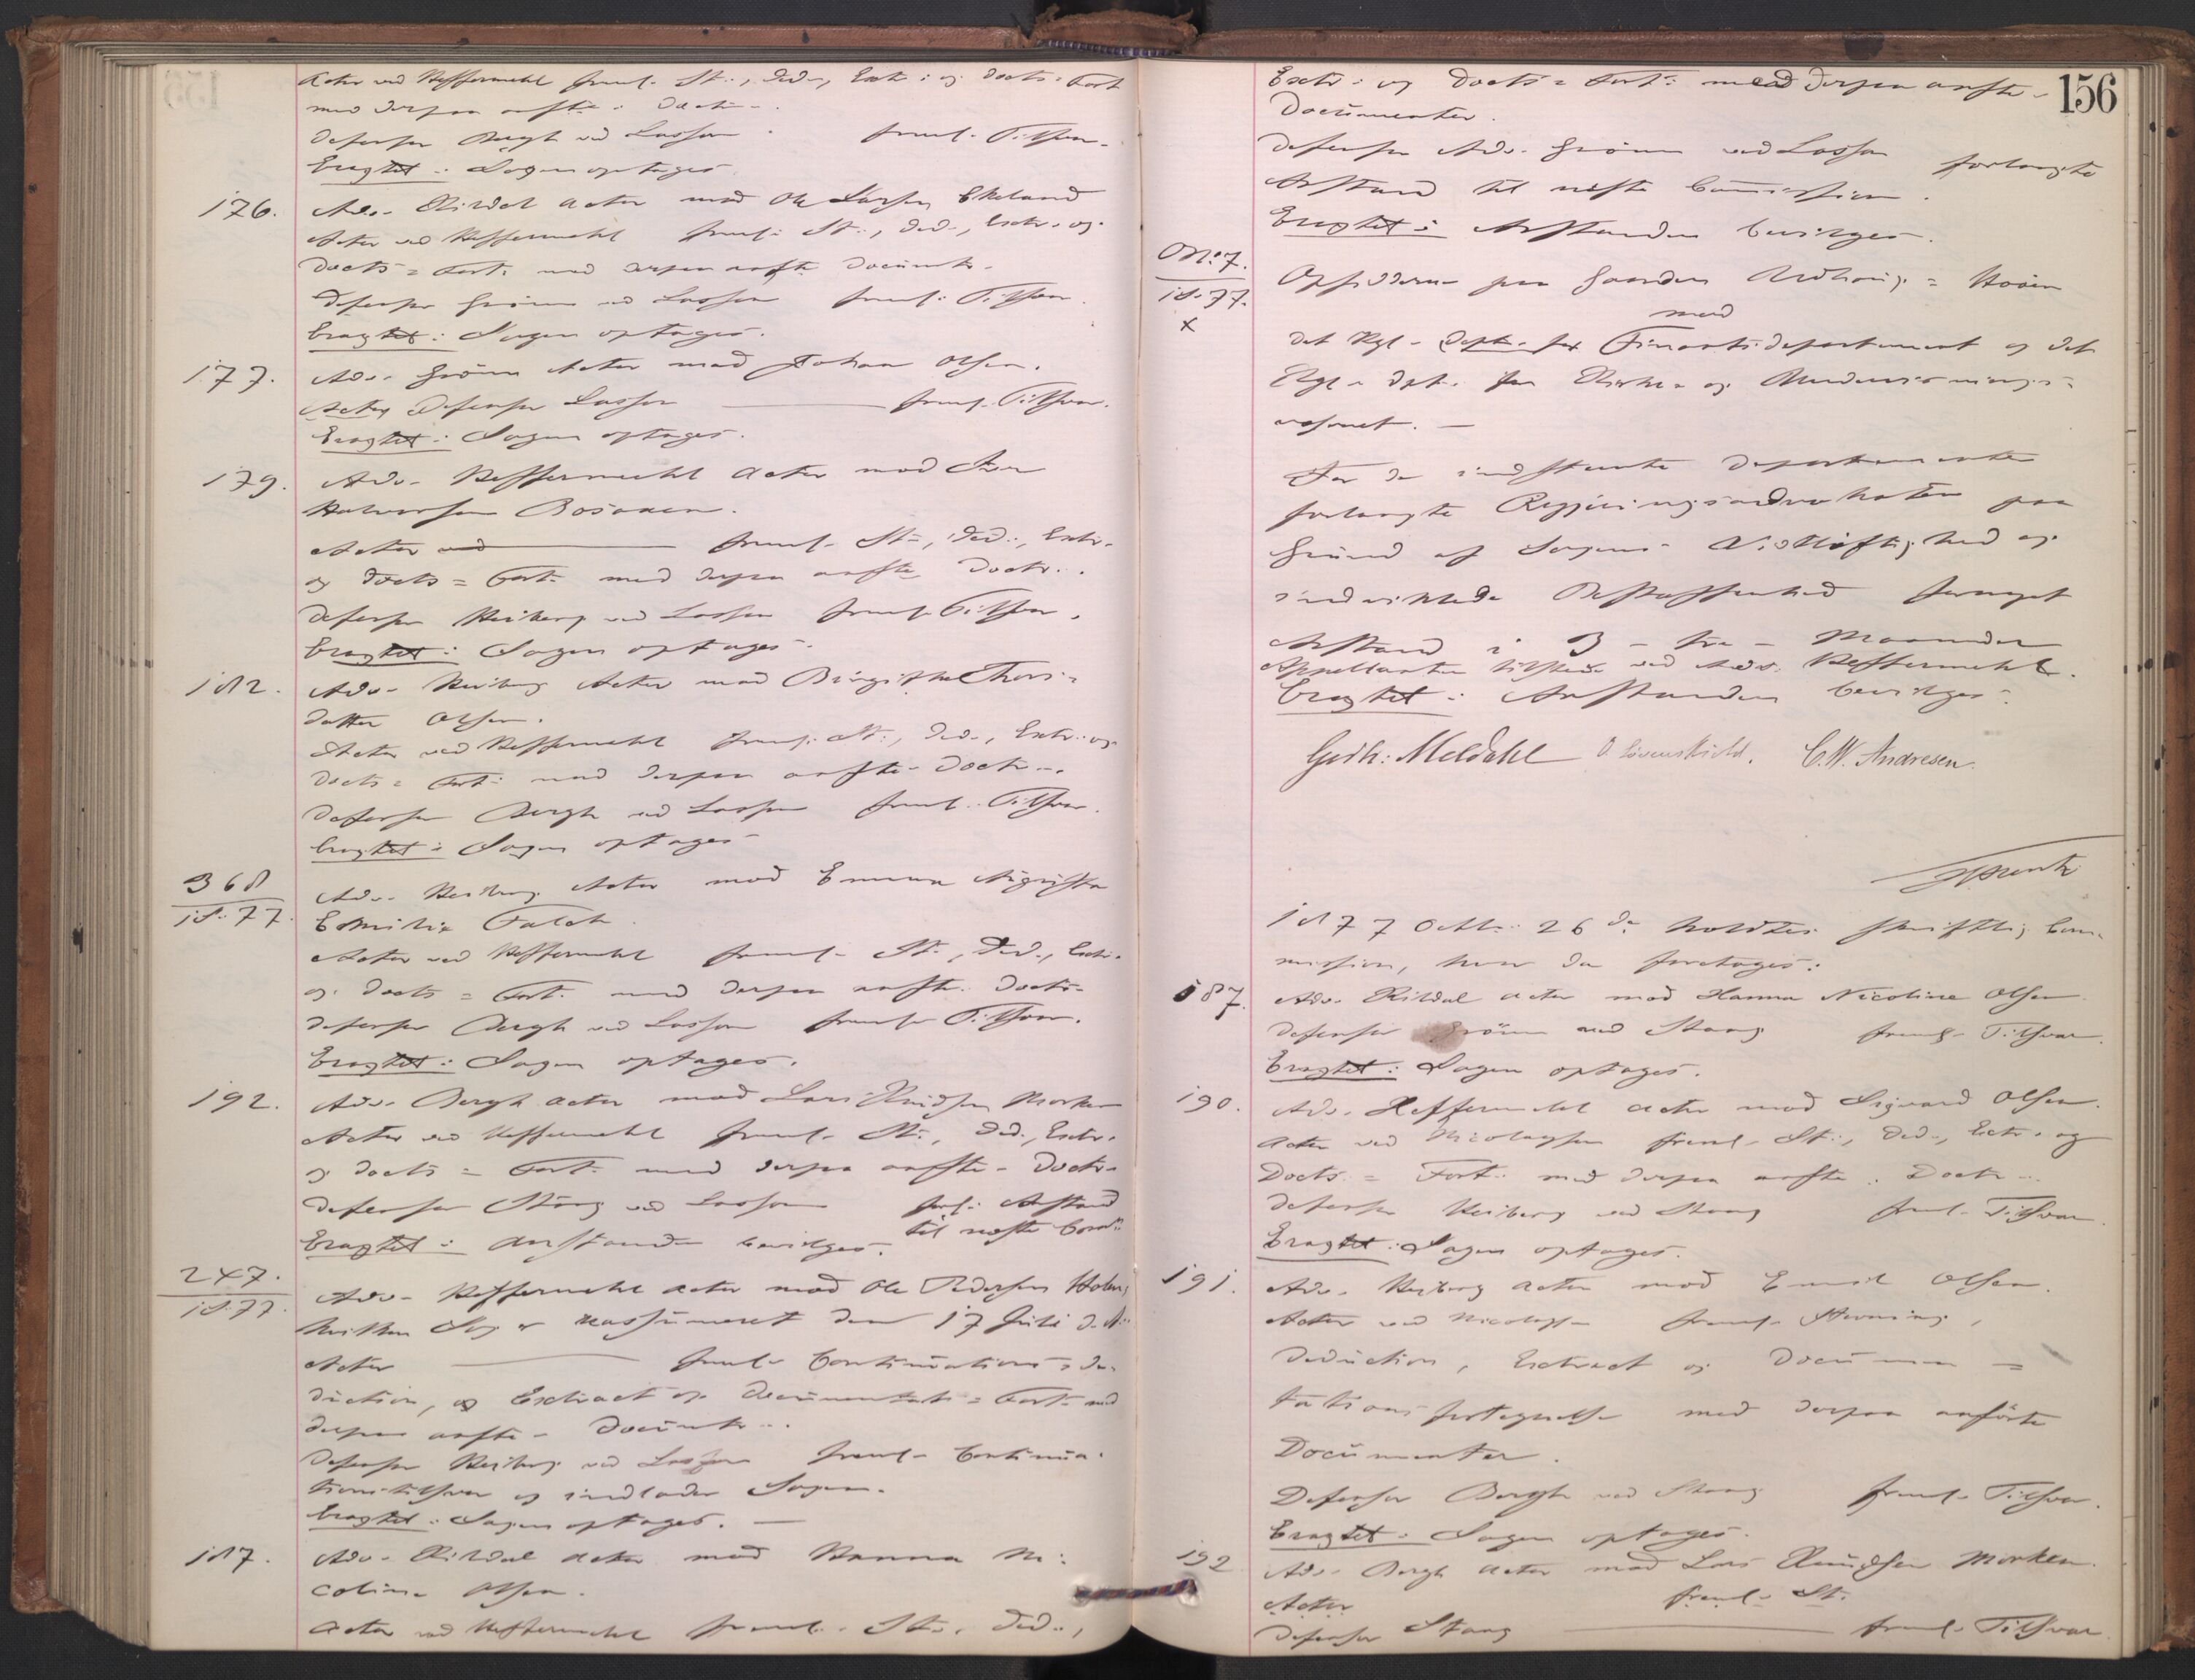 Acter ved Heffermehl freml. St., Ded., Extr. og Docts = Fort
med derpaa anfte. Docter.
Defensor Bergh ved Lasson freml. Tilsvar.
Eragtet: Sagen optages.
176. Adv. Rildal Acter mod Ole Larsen Ekeland
Acter ved Heffermehl freml. St., Ded., Extr. og
Docts = Fort. med derpaa anfte Documtr.
Defensor Grönn ved Lasson freml. Tilsvar.
Eragtet: Sagen optages.
177. Adv. Grönn Acter mod Johan Olsen.
Defensor Lasson freml. Tilsvar.
Eragtet: Sagen optages.
179. Adv. Heffermehl Acter mod
Halvorsen
Acter freml. St., Ded., Extr.
og Docts = Fort. med derpaa anfte Doctr.
Defensor Heiberg ved Lasson freml. Tilsvar.
Eragtet: Sagen optages.
182. Adv. Heiberg Acter mod Birgithe Thors=
datter Olsen.
Acter ved Heffermehl freml. St., Ded., Extr. og
Docts = Fort. med derpaa anfte Doctr.
Defensor Bergh ved Lasson freml. Tilsvar.
Eragtet: Sagen optages
368
18.77. Adv. Heiberg Acter mod Emma Augusta
Emilie Falch
Acter ved Heffermehl freml. St., Ded., Extr.
og Docts = Fort. med derpaa anfte. Doctr.
Defensor Bergh ved Lasson freml. Tilsvar.
Eragtet: Sagen optages.
192. Adv. Bergh Acter mod Lars Knudsen Morken
Acter ved Heffermehl freml. St., Ded., Extr.
og Docts = Fort. med derpaa anfte. Doctr.
Defensor Stang ved Lasson forl. Anstand
til næste Comm
Eragtet: Anstanden bevilges.
247.
18.77. Adv. Heffermehl Acter mod Ole Pedersen
hvilken Sag er reassumeret den 17 Juli d. A.
Acter freml. Continuations = De=
duction, Extract og Documentats = Fort. med
derpaa anfte. Documtr.
Defensor Heiberg ved Lasson freml. Continua=
tionstilsvar og indlader Sagen.
Eragtet: Sagen optages.
187. Adv. Rildal Acter mod Hanna Ni=
coline Olsen.
Acter ved Heffermehl freml. St., Ded.,
156
Extr. og Docts = Fort. med derpaa anfte.
Documenter.
Defensor Adv. Grönn ved Lasson forlangte
Anstand til næste Commission.
Eragtet: Anstanden bevilges.
No. 7.
18.77.
x
Opsidderne paa Gaarden
mod
det Kgl. Finantsdepartement og det
Kgl. Dpt. for Kirke= og Undervisnings=
væsenet.
For de indstevnte Departementer
forlangte Regjeringsadvokaten paa
Grund af Sagens Vidtløftighed og
indviklede Beskaffenhed fornyet
Anstand i 3 - tre - Maaneder
Appellanten tilstede ved Adv. Heffermehl.
Eragtet: Anstanden bevilges.
Gerh: Meldahl O Løvenskiold. C. W. Andresen.
1877 Octbr. 26de holdtes skriftlig Com=
mission, hvor da foretages:
187. Adv. Rildal Acter mod Hanna Nicoline Olsen
Defensor Grönn ved Stang freml. Tilsvar.
Eragtet: Sagen optages.
190. Adv. Heffermehl Acter mod Sigvard Olsen.
Acter ved Nicolaysen freml. St., Ded., Extr. og
Docts = Fort. med derpaa anfte. Doctr.
Defensor Heiberg ved Stang freml. Tilsvar.
Eragtet: Sagen optages.
191. Adv. Heiberg Acter mod Emil Olsen.
Acter ved Nicolaysen freml. Stevning,
Deduction, Extract og Documen=
tationsfortegnelse med derpaa anförte
Documenter.
Defensor Bergh ved Stang freml. Tilsvar.
Eragtet: Sagen optages.
192 Adv. Bergh Acter mod Lars Knudsen Morken.
Acter freml. St.
Defensor Stang freml. Tilsvar